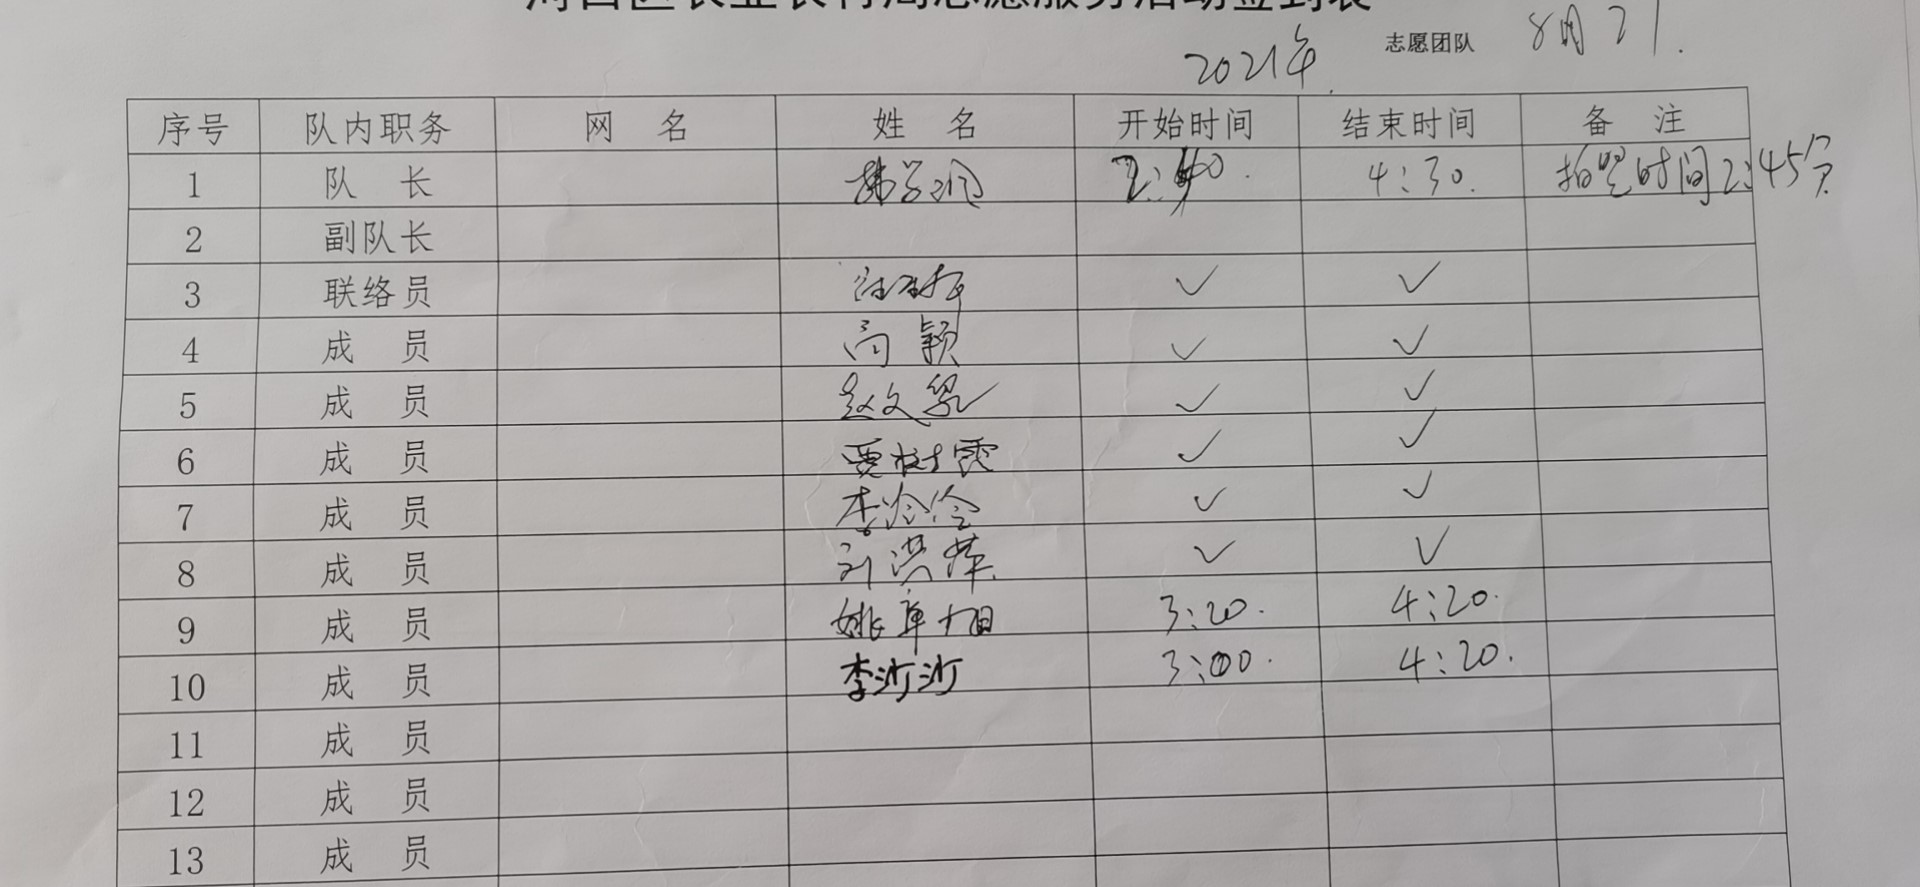 农业农村局志愿服务活动签到表
2021年 志愿团队 8月21.
序号 队内职务 网 名 姓 名 开始时间 结束时间 备 注
1 队 长 2:40. 4:30. 拍照时间2:45分
2 副队长
3 联络员 ✓ ✓
4 成 员 高颖 ✓ ✓
5 成 员 赵文 ✓ ✓
6 成 员 贾树霞 ✓ ✓
7 成 员 李冷冷 ✓ ✓
8 成 员 刘洪萍 ✓ ✓
9 成 员 姚阜旭 3:20. 4:20.
10 成 员 李沙沙 3:00. 4:20.
11 成 员
12 成 员
13 成 员